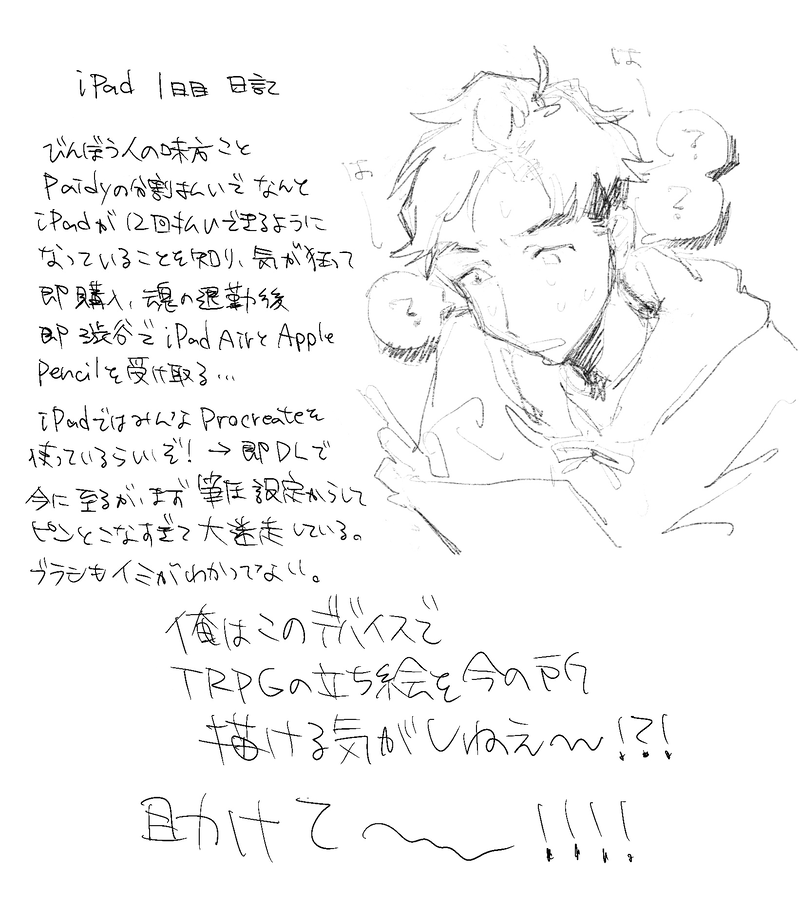 iPad 1日目 日記
びんぼう人の味方こと
Paidyの分割払いでなんと
iPadが12回払いできるように
なっていることを知り、気が狂って
即購入、魂の退勤後
即 渋谷でiPad AirとApple
Pencilを受け取る…
iPadではみんなProcreateを
使っているらしいぞ! → 即DLで
今に至るが、まず筆圧設定からして
ピンとこなすぎて大迷走している。
ブラシもイミがわかってない。
は
は
?
?
?
俺はこのデバイスで
TRPGの立ち絵を今の所
描ける気がしねえ〜〜!?!
助けて〜〜!!!!